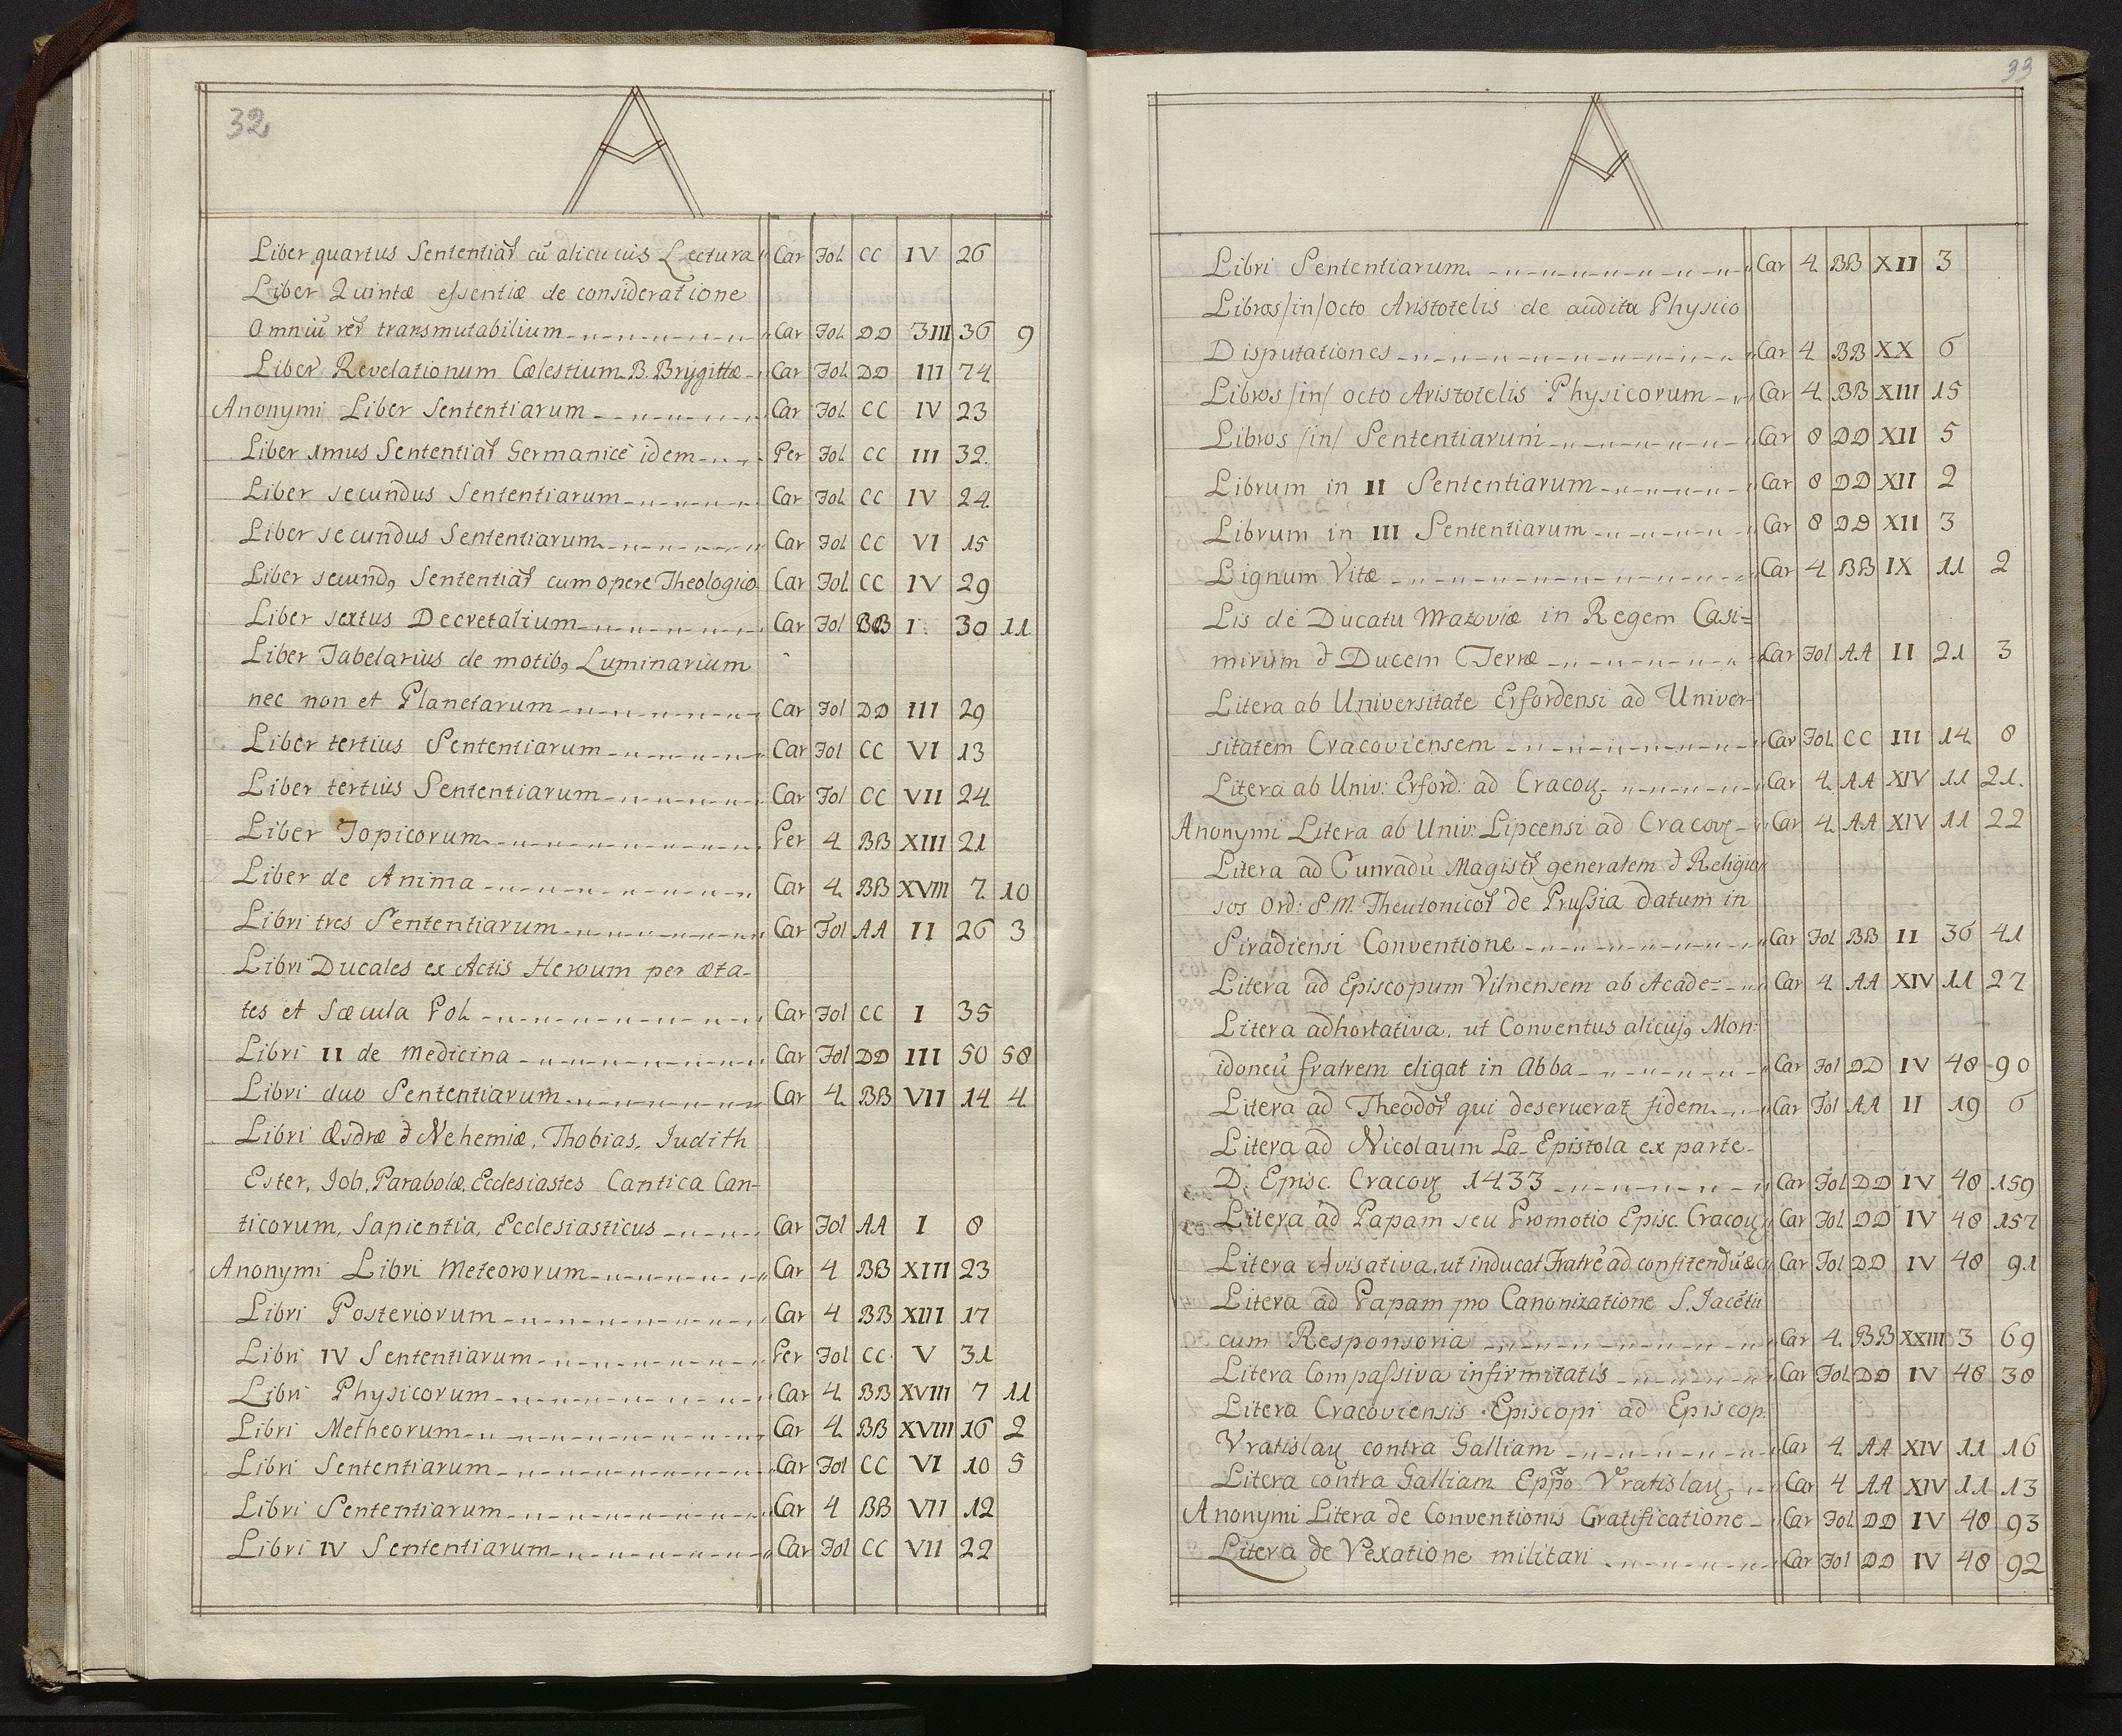 32
A
Liber quartus Sententiaꝝ cū alicuius Lectura Car Fol CC IV 26
Liber Quintæ essentiæ de consideratione
Omniū reꝝ transmutabilium Car Fol DD 3III 36 9
Liber Revelationum Cælestium B. Brygittæ Car Fol DD III 74
Anonymi Liber Sententiarum Car Fol CC IV 23
Liber 1mus Sententiaꝝ Germanice idem Per Fol CC III 32.
Liber secundus Sententiarum Car Fol CC IV 24
Liber secundus Sententiarum Car Fol CC VI 15
Liber secundꝰ Sententiaꝝ cum opere Theologico Car Fol CC IV 29
Liber sextus Decretalium Car Fol BB I 30 11
Liber Tabelarius de motibꝰ Luminarium
nec non et Planetarum Car Fol DD III 29
Liber tertius Sententiarum Car Fol CC VI 13
Liber tertius Sententiarum Car Fol CC VII 24
Liber Topicorum Per 4 BB XIII 21
Liber de Anima Car 4 BB XVIII 7 10
Libri tres Sententiarum Car Fol AA II 26 3
Libri Ducales ex Actis Heroum per æta-
tes et Sæcula Pol Car Fol CC I 35
Libri II de medicina Car Fol DD III 50 58
Libri duo Sententiarum Car 4 BB VII 14 4
Libri Æsdræ & Nehemiæ, Thobias, Judith
Ester, Job, Parabolæ, Ecclesiastes Cantica Can-
ticorum, Sapientia, Ecclesiasticus Car Fol AA I 8
Anonymi Libri Meteororum Car 4 BB XIII 23
Libri Posteriorum Car 4 BB XIII 17
Libri IV Sententiarum Per Fol CC V 31
Libri Physicorum Car 4 BB XVIII 7 11
Libri Metheorum Car 4 BB XVIII 16 2
Libri Sententiarum Car Fol CC VI 10 5
Libri Sententiarum Car 4 BB VII 12
Libri IV Sententiarum Car Fol CC VII 22
33
A
Libri Sententiarum Car 4 BB XII 3
Libros /in/ Octo Aristotelis de auditu Physico
Disputationes Car 4 BB XX 6
Libros /in/ octo Aristotelis Physicorum Car 4 BB XIII 15
Libros /in/ Sententiarum Car 8 DD XII 5
Librum in II Sententiarum Car 8 DD XII 2
Librum in III Sententiarum Car 8 DD XII 3
Lignum Vitæ Car 4 BB IX 11 2
Lis de Ducatu Mazoviæ in Regem Casi=
mirum & Ducem Terræ Car Fol AA II 21 3
Litera ab Universitate Erfordensi ad Univer-
sitatem Cracoviensem Car Fol CC III 14 8
Litera ab Univ: Erford: ad Cracov Car 4 AA XIV 11 21.
Anonymi Litera ab Univ: Lipcensi ad Cracov Car 4 AA XIV 11 22
Litera ad Cunradū Magistꝝ generalem & Religio
sos Ord: S.M. Theutonicoꝝ de Prussia datum in
Siradiensi Conventione Car Fol BB II 36 41
Litera ad Episcopum Vilnensem ab Acade- Car 4 AA XIV 11 27
Litera adhortativa, ut Conventus alicujꝰ Mon:
idoneū fratrem eligat in Abba Car Fol DD IV 48 90
Litera ad Theodoꝝ qui deseruerat fidem Car Fol AA II 19 6
Litera ad Nicolaum La- Epistola ex parte-
D. Episc Cracov 1433 Car Fol DD IV 48 159
Litera ad Papam seu Promotio Episc. Cracov Car Fol DD IV 48 157
Litera Avisativa, ut inducat Fratrē ad confitendū &c Car Fol DD IV 48 91
Litera ad Papam pro Canonizatione S. Jacēti
cum Responsoria Car 4 BB XXIII 3 69
Litera Compassiva infirmitatis Car Fol DD IV 48 38
Litera Cracoviensis Episcopi ad Episcop
Vratislav contra Galliam Car 4 AA XIV 11 16
Litera contra Galliam Eppo Vratislav Car 4 AA XIV 11 13
Anonymi Litera de Conventionis Gratificatione Car Fol DD IV 48 93
Litera de Vexatione militari Car Fol DD IV 48 92